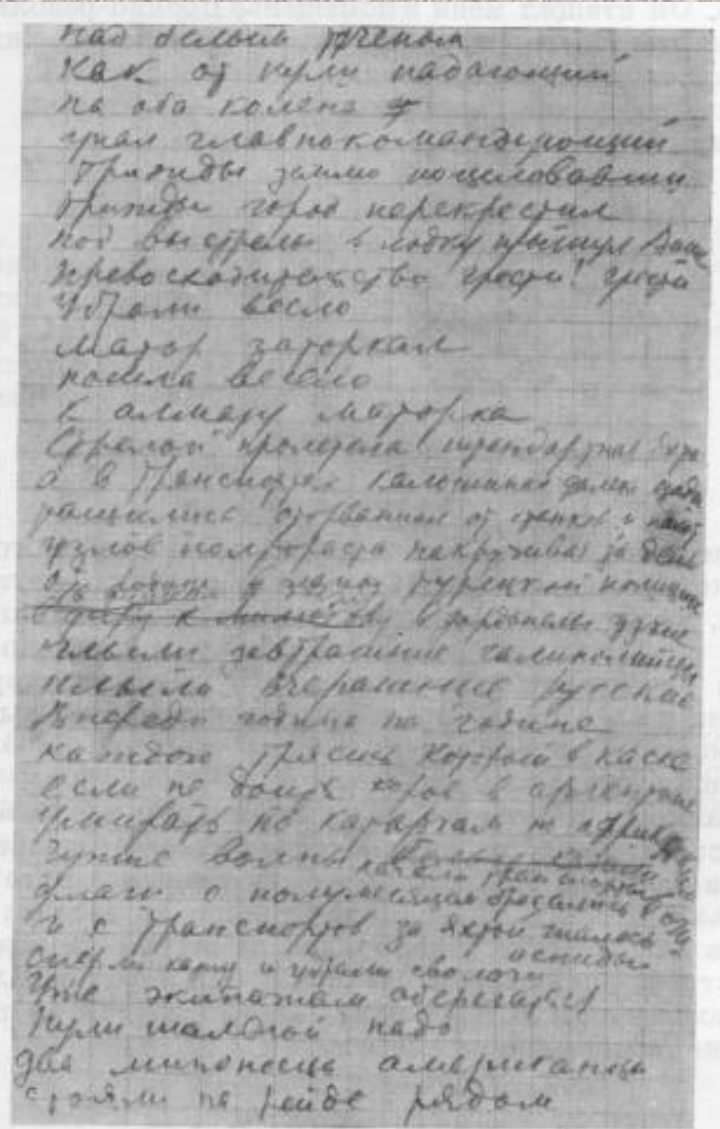 над белым тленом
Как от пули падающий
на оба колена
упал главнокомандующий
Трижды землю поцеловавши
трижды город перекрестил
под выстрелы в лодку прыгнул Ваше
превосходительство грести! грести
Убрали весло
матор заторкал
пошла весело
к алмазу маторка
Стрелой пролетела штандартная
а в транспортах галошинах далеко сзади
тащились оторванные от станков и
узлов полтораста накручивая за день
от родины в лапы турецкой полиции
в дарданеллы узкие
плыли завтрашние галлиполийцы
плыли вчерашние русские
Впереди година на године
каждого трясись который в каске
если не доить коров в аргентине
умирать по каторгам по африканским
Чужие волны качали транспорты
флаги с полумесяцем бросались в очи
и с транспортов за яхтой гналось аспиды
сперли казну и удрали сволочи
Уже экипажам оберегаться
пули шальной надо
два миноносца американца
стояли на рейде рядом